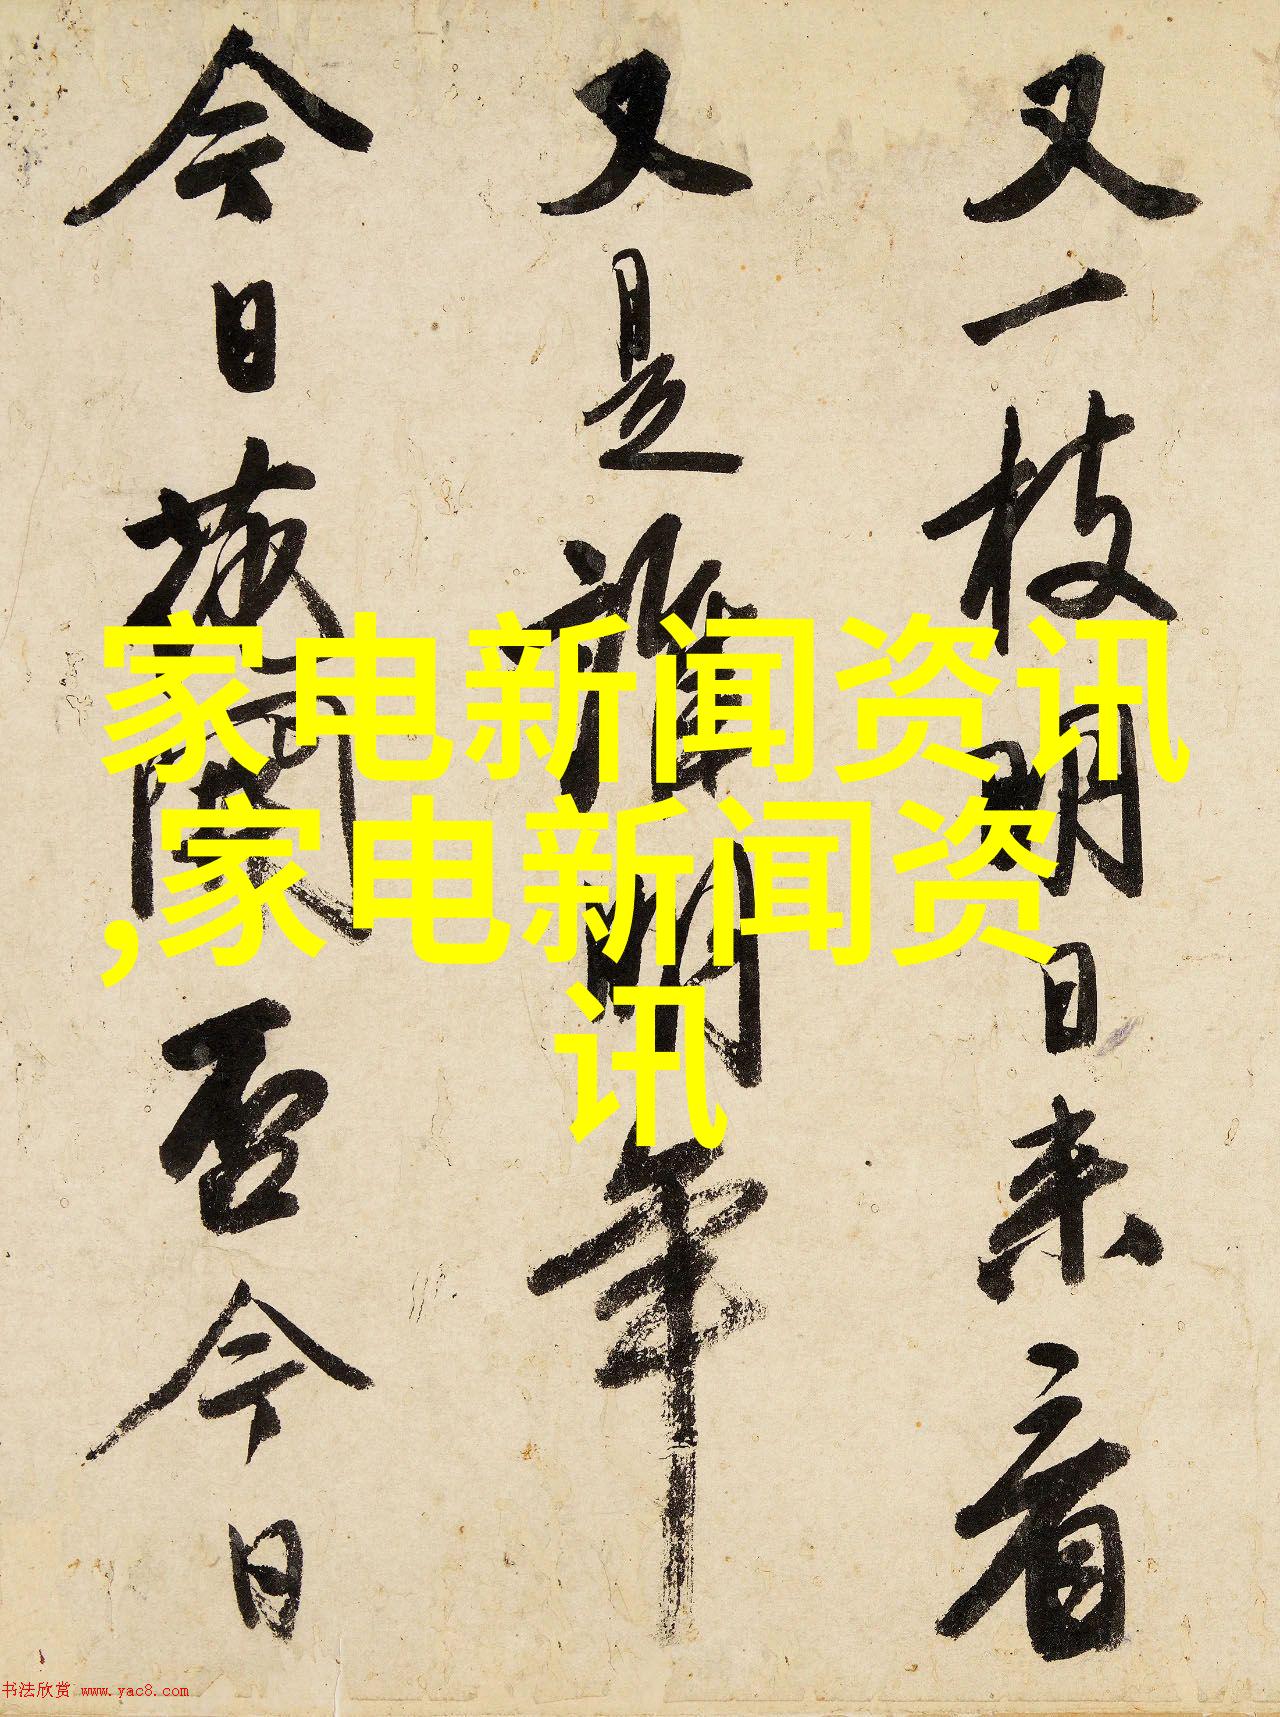 又一枝明日来看
又是谁明年
今日城闉否今日
家电新闻资讯
,家电新闻资
讯
书法欣赏 www.yac8.com